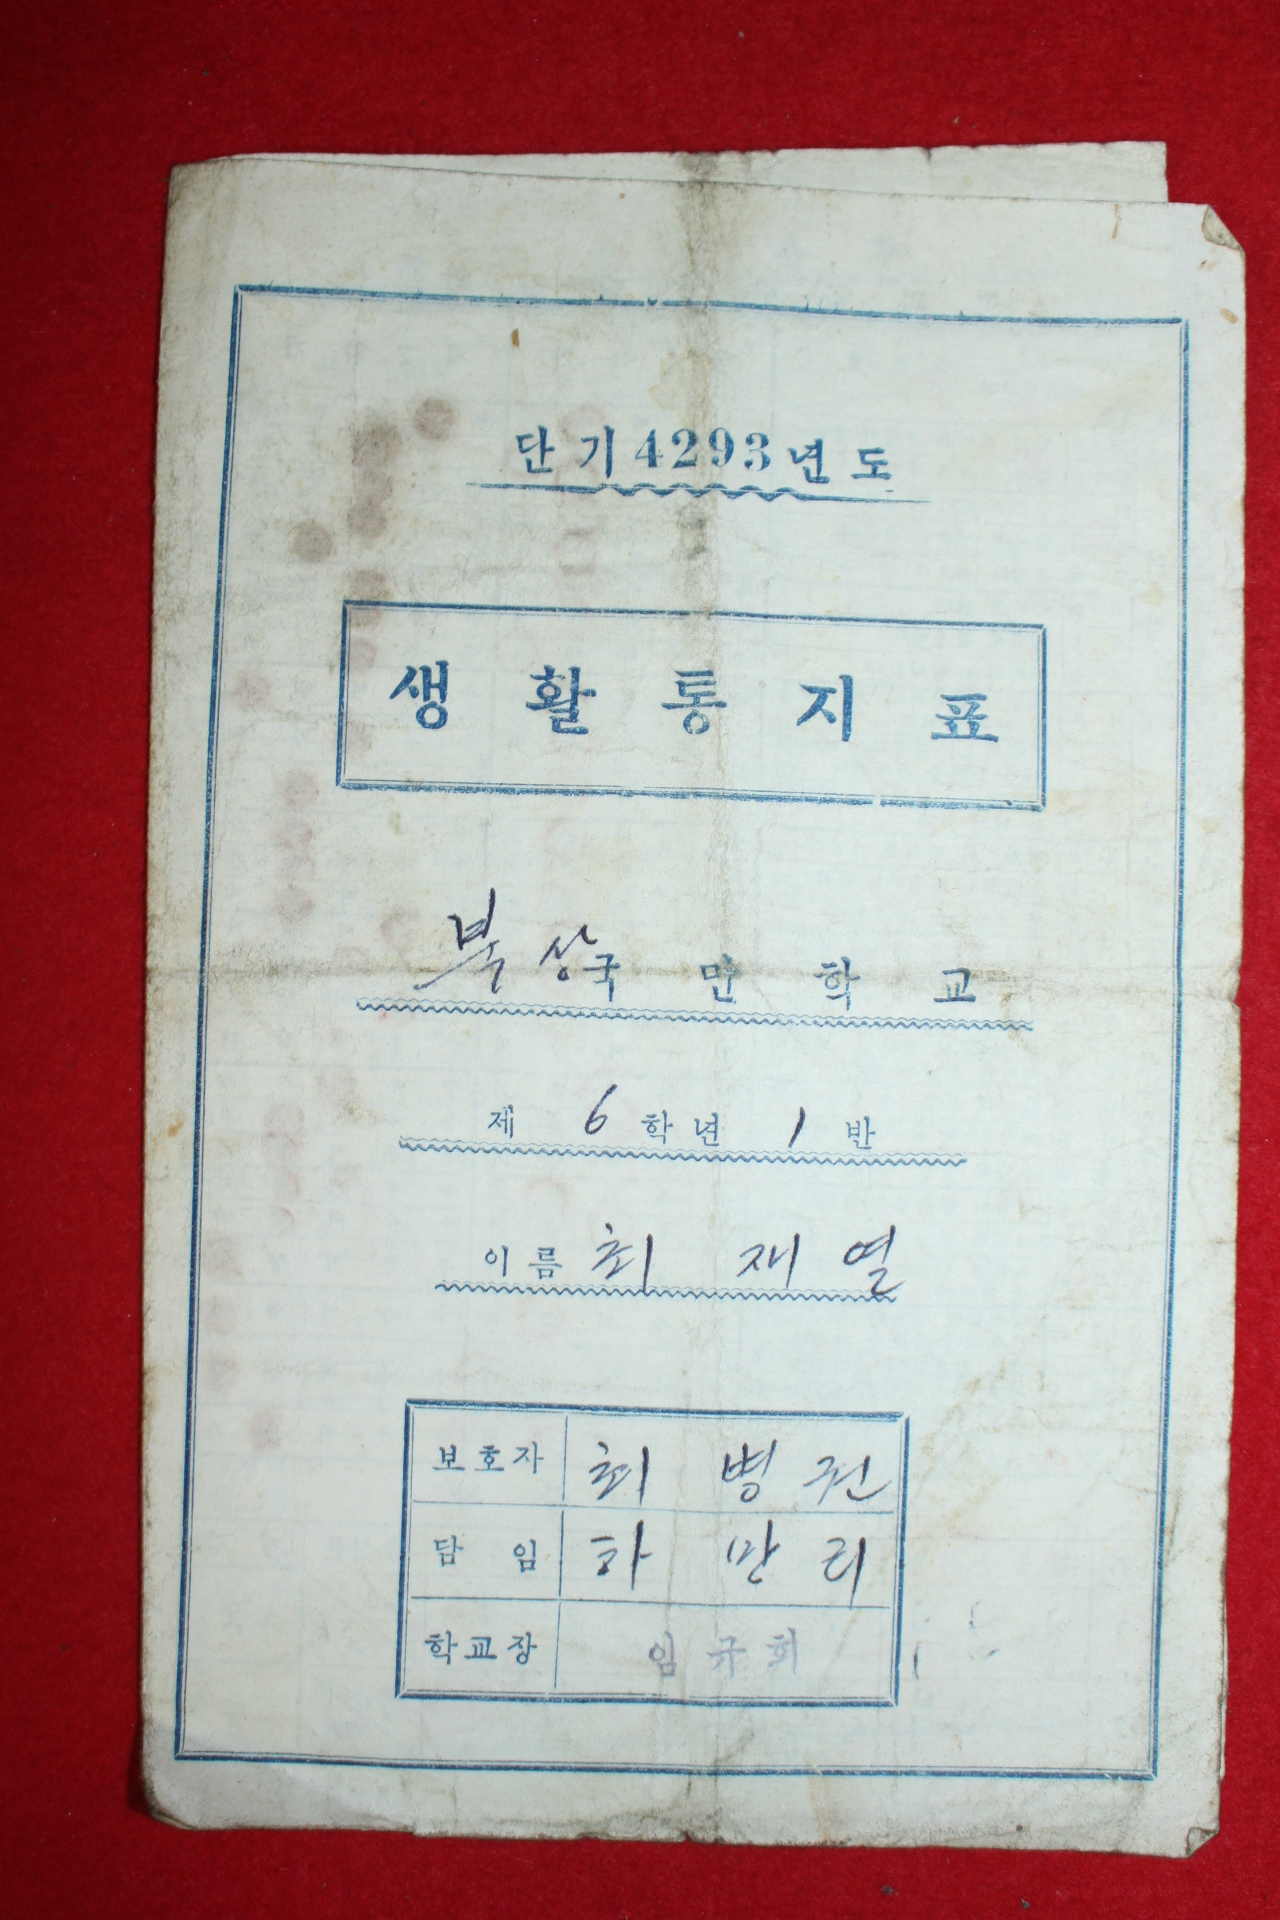 단기4293년도
생활통지표
북상국민학교
제 6 학년 1 반
이름 최재열
보호자 최병권
담임 하만리
학교장 임규희